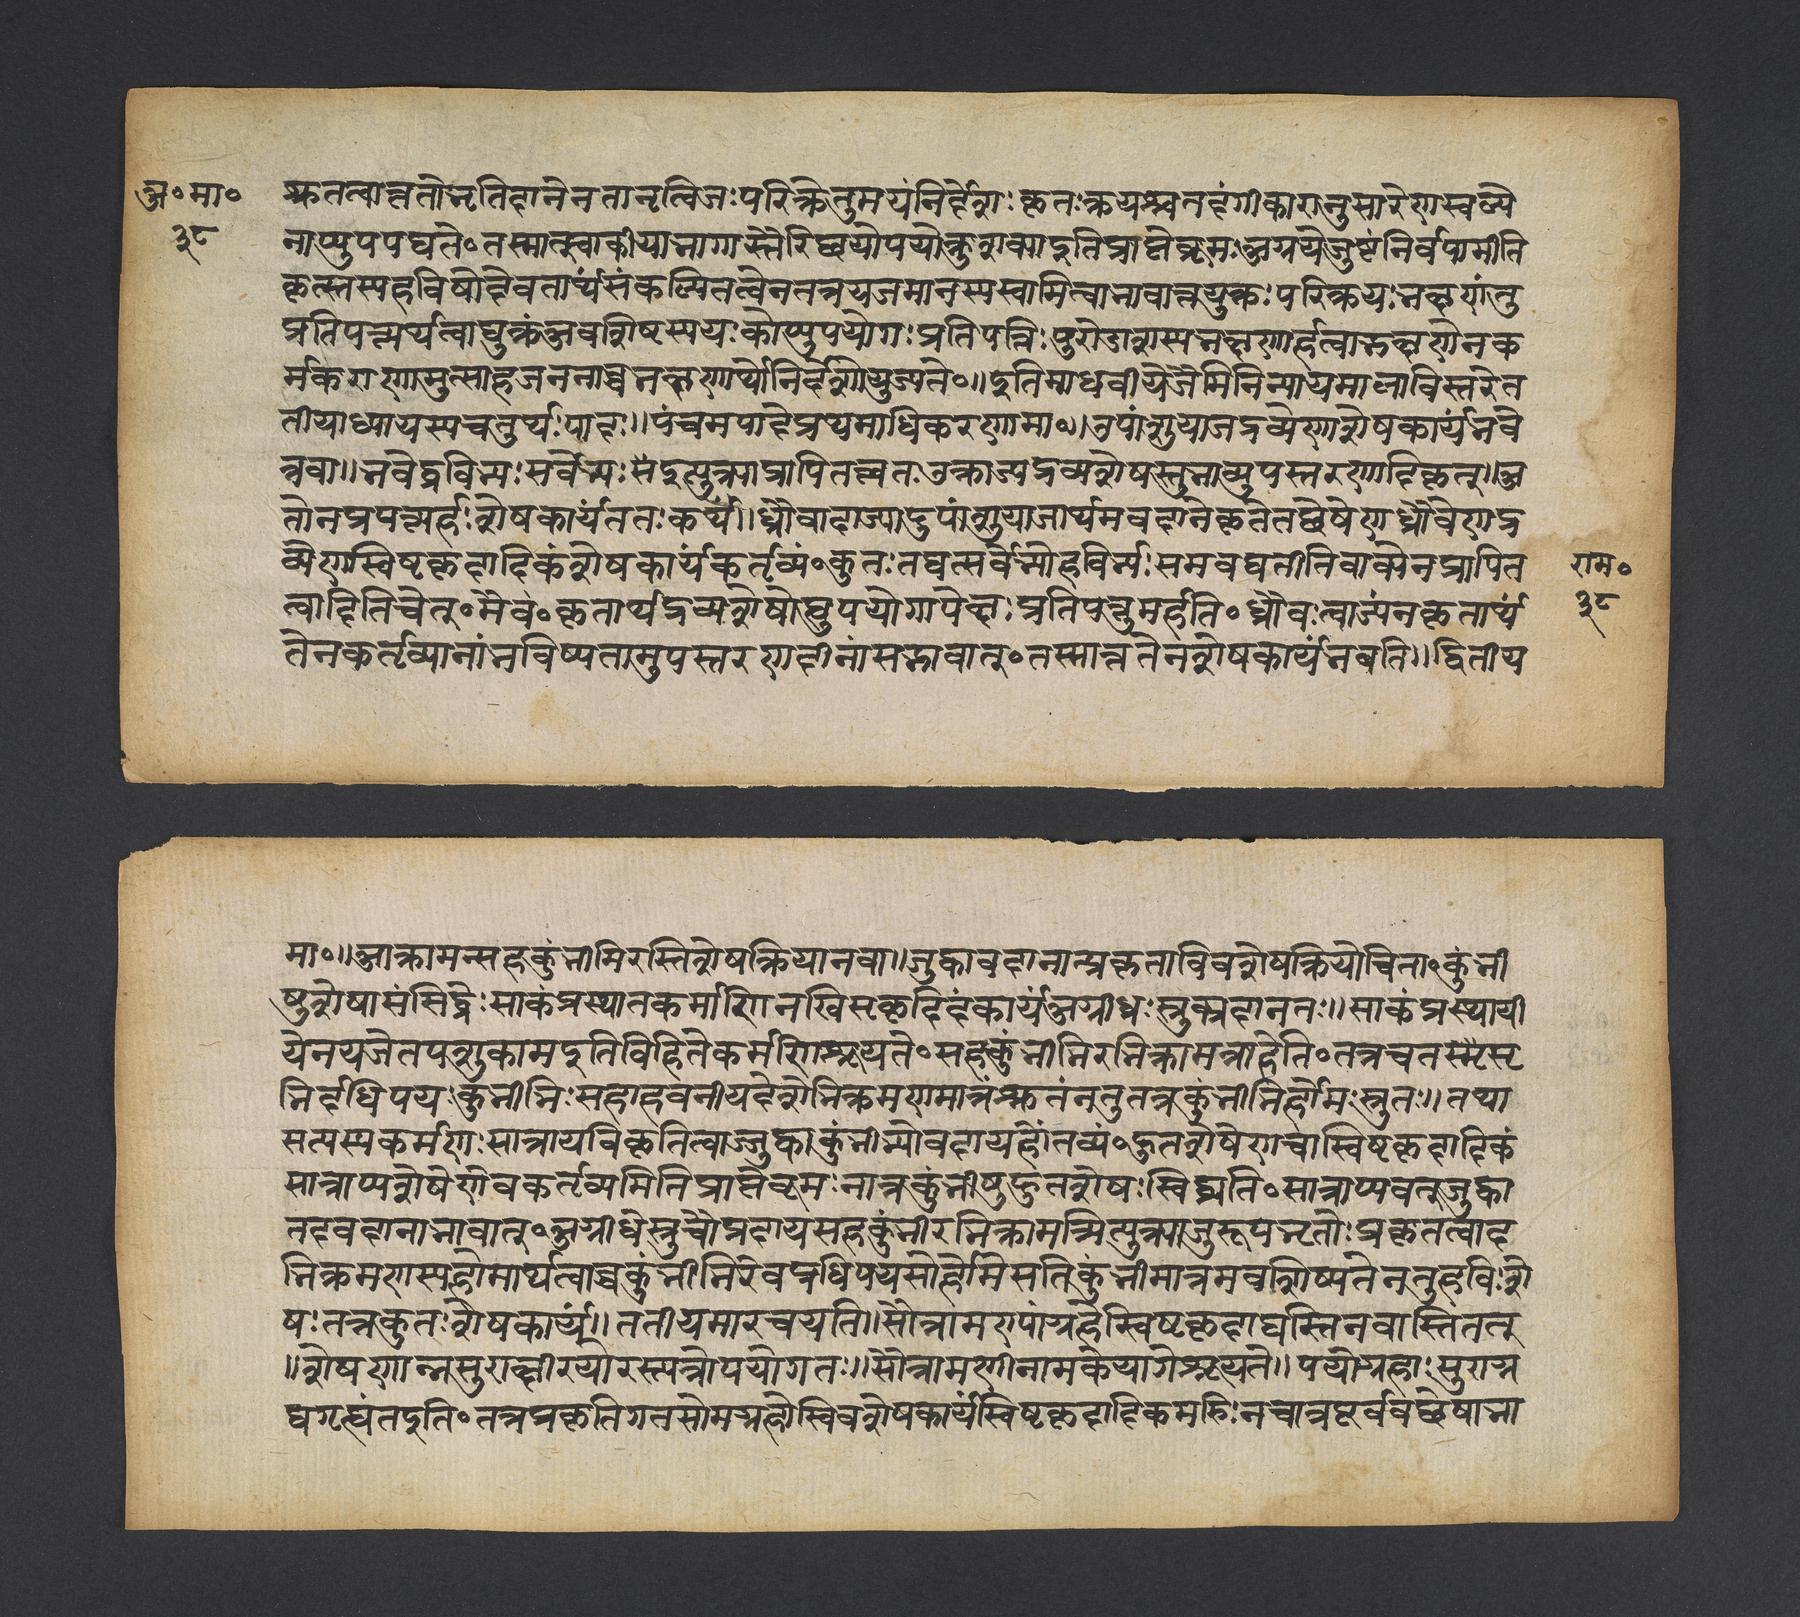 अ॰मा॰
३८
श्रुतत्वान्नतोनृतिदानेनतानृत्विजःपरिक्रेतुमयंनिर्देशःकृतःक्रयश्चतदंगीकारानुसारेणस्वल्पे
नाप्युपपद्यते॰तस्मात्स्वकीयाभागास्तैरिछयोपयोक्तुशक्याइतिप्राप्तेब्रूमःअग्नयेजुष्टंनिर्वपामीति
कृत्स्नस्यहविषोदेवतार्थंसंकल्पितत्वेनतत्रयजमानस्यस्वामित्वाभावान्नयुक्तःपरिक्रयःभक्षणंतु
प्रतिपत्त्यर्थत्वाद्युक्तंअवशिष्टस्ययःकोप्युपयोगःप्रतिपत्तिःपुरोडाशस्यभक्षणार्हत्वाद्भक्षणेनक
र्मकराणामुत्साहजननाच्चभक्षणार्थोनिर्देशोयुज्यते॰॥इतिमाधवीयेजैमिनिन्यायमालाविस्तरेतृ
तीयाध्यायस्यचतुर्थःपादः॥पंचमपादेप्रथमाधिकरणमा॰॥उपांशुयाजद्रव्येणशेषकार्यंभवे
न्नवा॥भवेद्धविभ्यःसर्वेभ्यःसइत्युक्त्याप्रापितत्वतःउक्ताज्यद्रव्यशेषस्तुभाव्युपस्तरणादिकृत्॥अ
तोनप्रपत्त्यर्हःशेषकार्यंततःकथं॥ध्रौवादाज्यादुपांशुयाजार्थमवदानेकृतेतछेषेणध्रौवेणद्र
व्येणस्विष्टकृदादिकंशेषकार्यंकर्तव्यं॰कुतःतद्यत्सर्वेभ्योहविर्भ्यःसमवद्यतीतिवाक्येनप्रापित
त्वादितिचेत्॰मैवं॰कृतार्थद्रव्यशेषोह्युपयोगापेक्षःप्रतिपत्तुमर्हति॰ध्रौवःत्वाज्यंनकृतार्थं
तेनकर्तव्यानांभविष्यतामुपस्तरणादीनांसद्भावात्॰तस्मान्नतेनशेषकार्यंभवति॥द्वितीय
राम॰
३८
मा॰॥आक्रामन्सहकुंभीभिरस्तिशेषक्रियानवा॥जुह्वावदानात्प्रकृताविवशेषक्रियोचिताःकुंभी
षुशेषासंसिद्धेःसाकंप्रस्थातकर्माणिनखिसकृदिदंकार्यंअग्नीध्रःस्त्रुक्प्रदानतः॥साकंप्रस्थायी
येनयजेतपशुकामइतिविहितेकर्मणिश्रूयते॰सहकुंभीभिरभिक्रामन्नाहेति॰तत्रचतसृसृ
भिर्दधिपयःकुंभीभिःसहाहवनीयदेशेभिक्रमणमात्रंश्रुतंनतुतत्रकुंभीभिर्होमःस्त्रुतः॥तथा
सत्यस्यकर्मणःसान्नायविकृतित्वाज्जुह्वाकुंभीभ्योवदायहोतव्यं॰हुतशेषेणचास्विष्टकृदादिकं
सान्नाप्यशेषेणेवकर्तव्यमितिप्राप्तेब्रूमःनात्रकुंभीषुहुतशेषःस्विद्ध्यति॰सान्नाप्यवत्जुह्वा
तदवदानाभावात्॰अग्नीधेस्त्रुचौप्रदायसहकुंभीरभिक्रामन्नित्युक्त्याजुहूपभृतोःप्रकृतत्वाद
भिक्रमणस्यहोमार्थत्वाच्चकुंभीभिरेवप्रधिपयसोर्होमेसतिकुंभीमात्रमवशिष्यतेनतुहविःशे
षःतत्रकुतःशेषकार्यं॥तृतीयमारचयति॥सौत्रामण्यांग्रहेस्विष्टकृदाद्यस्तिनवास्तितत्
॥शेषणान्नसुराक्षीरयोरस्त्यत्रोपयोगतः॥सौत्रामणीनामकेयागेश्रूयते॥पयोग्रहाःसुराग्र
द्यगृह्यंतइति॰तत्रप्रकृतिगतसोमग्रहेष्विवशेषकार्यंस्विष्टकृदादिकमस्तिःनचात्रपूर्ववछेषाभा